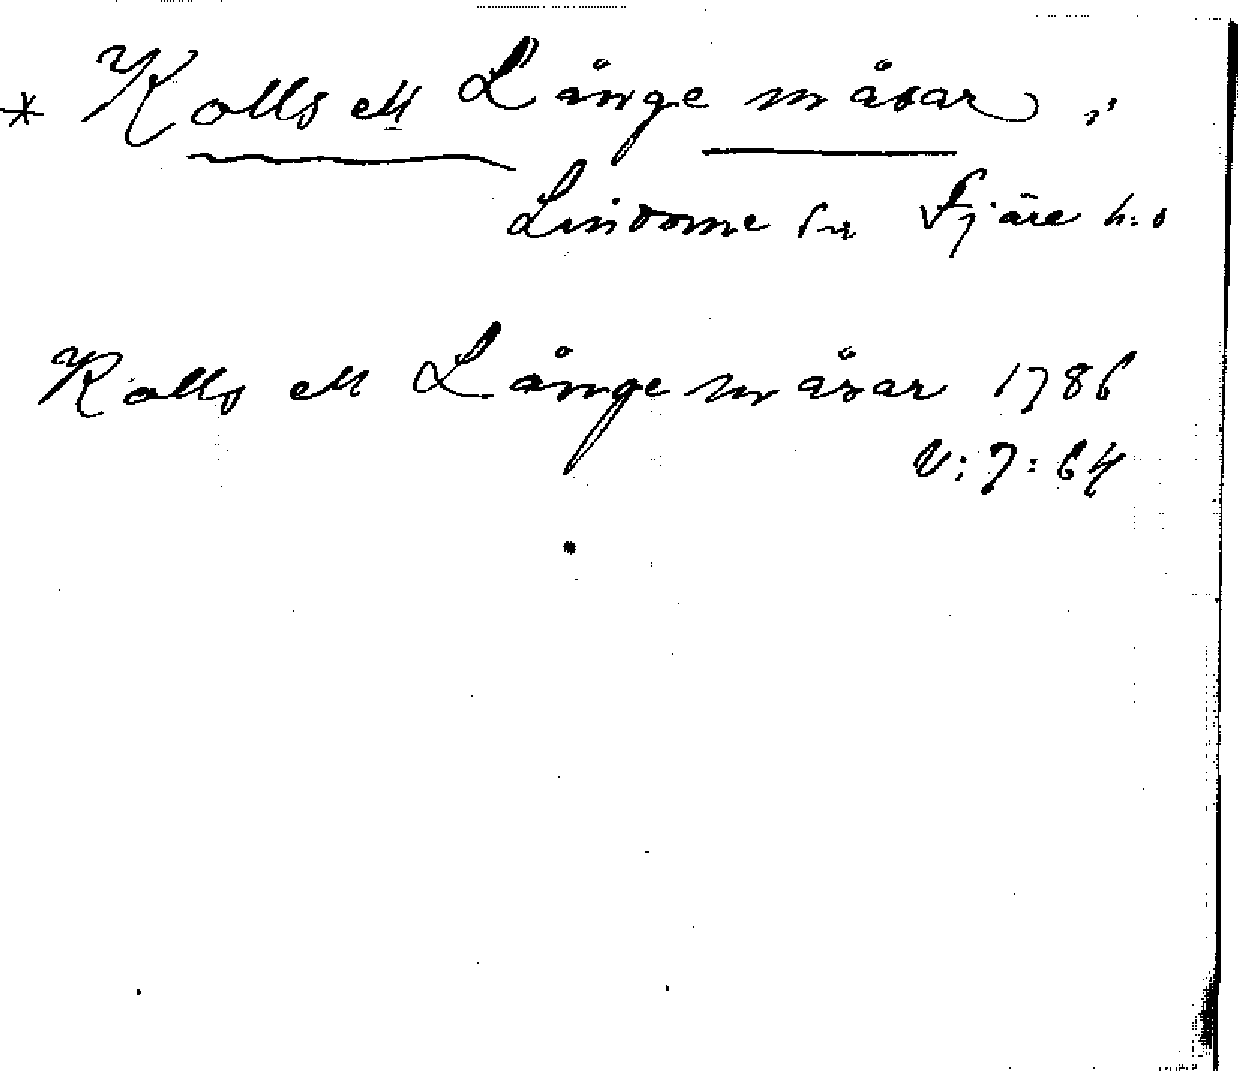 * Kolls ett Långe måsar i
Lindome sn Fjäre h:d
Kolls ett Långe måsar 1786
V:7:64